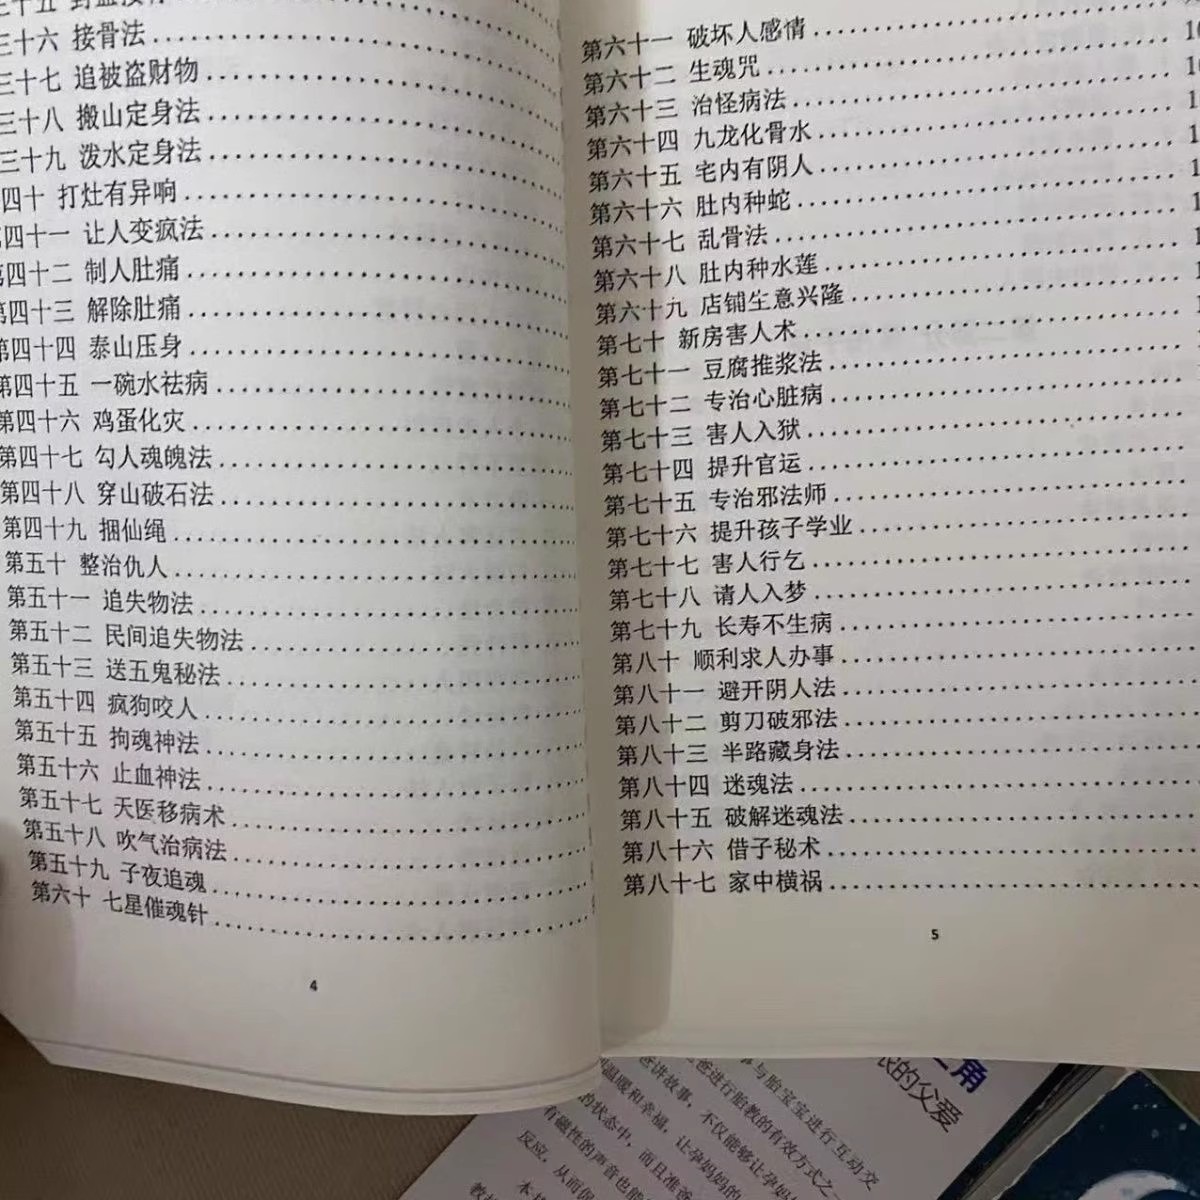 三十五 封血接骨
三十六 接骨法
三十七 追被盗财物
三十八 搬山定身法
三十九 泼水定身法
四十 打灶有异响
第四十一 让人变疯法
第四十二 制人肚痛
第四十三 解除肚痛
第四十四 泰山压身
第四十五 一碗水祛病
第四十六 鸡蛋化灾
第四十七 勾人魂魄法
第四十八 穿山破石法
第四十九 捆仙绳
第五十 整治仇人
第五十一 追失物法
第五十二 民间追失物法
第五十三 送五鬼秘法
第五十四 疯狗咬人
第五十五 拘魂神法
第五十六 止血神法
第五十七 天医移病术
第五十八 吹气治病法
第五十九 子夜追魂
第六十 七星催魂针
4
第六十一 破坏人感情
第六十二 生魂咒
第六十三 治怪病法
第六十四 九龙化骨水
第六十五 宅内有阴人
第六十六 肚内种蛇
第六十七 乱骨法
第六十八 肚内种水莲
第六十九 店铺生意兴隆
第七十 新房害人术
第七十一 豆腐推浆法
第七十二 专治心脏病
第七十三 害人入狱
第七十四 提升官运
第七十五 专治邪法师
第七十六 提升孩子学业
第七十七 害人行乞
第七十八 请人入梦
第七十九 长寿不生病
第八十 顺利求人办事
第八十一 避开阴人法
第八十二 剪刀破邪法
第八十三 半路藏身法
第八十四 迷魂法
第八十五 破解迷魂法
第八十六 借子秘术
第八十七 家中横祸
5
角
的父爱
与胎宝宝进行互动交
爸进行胎教的有效方式之一
爸讲故事，不仅能够让孕妈妈
温暖和幸福，让孕妈妈的
的状态中，而且准爸
有磁性的声音也能
反应，从而促